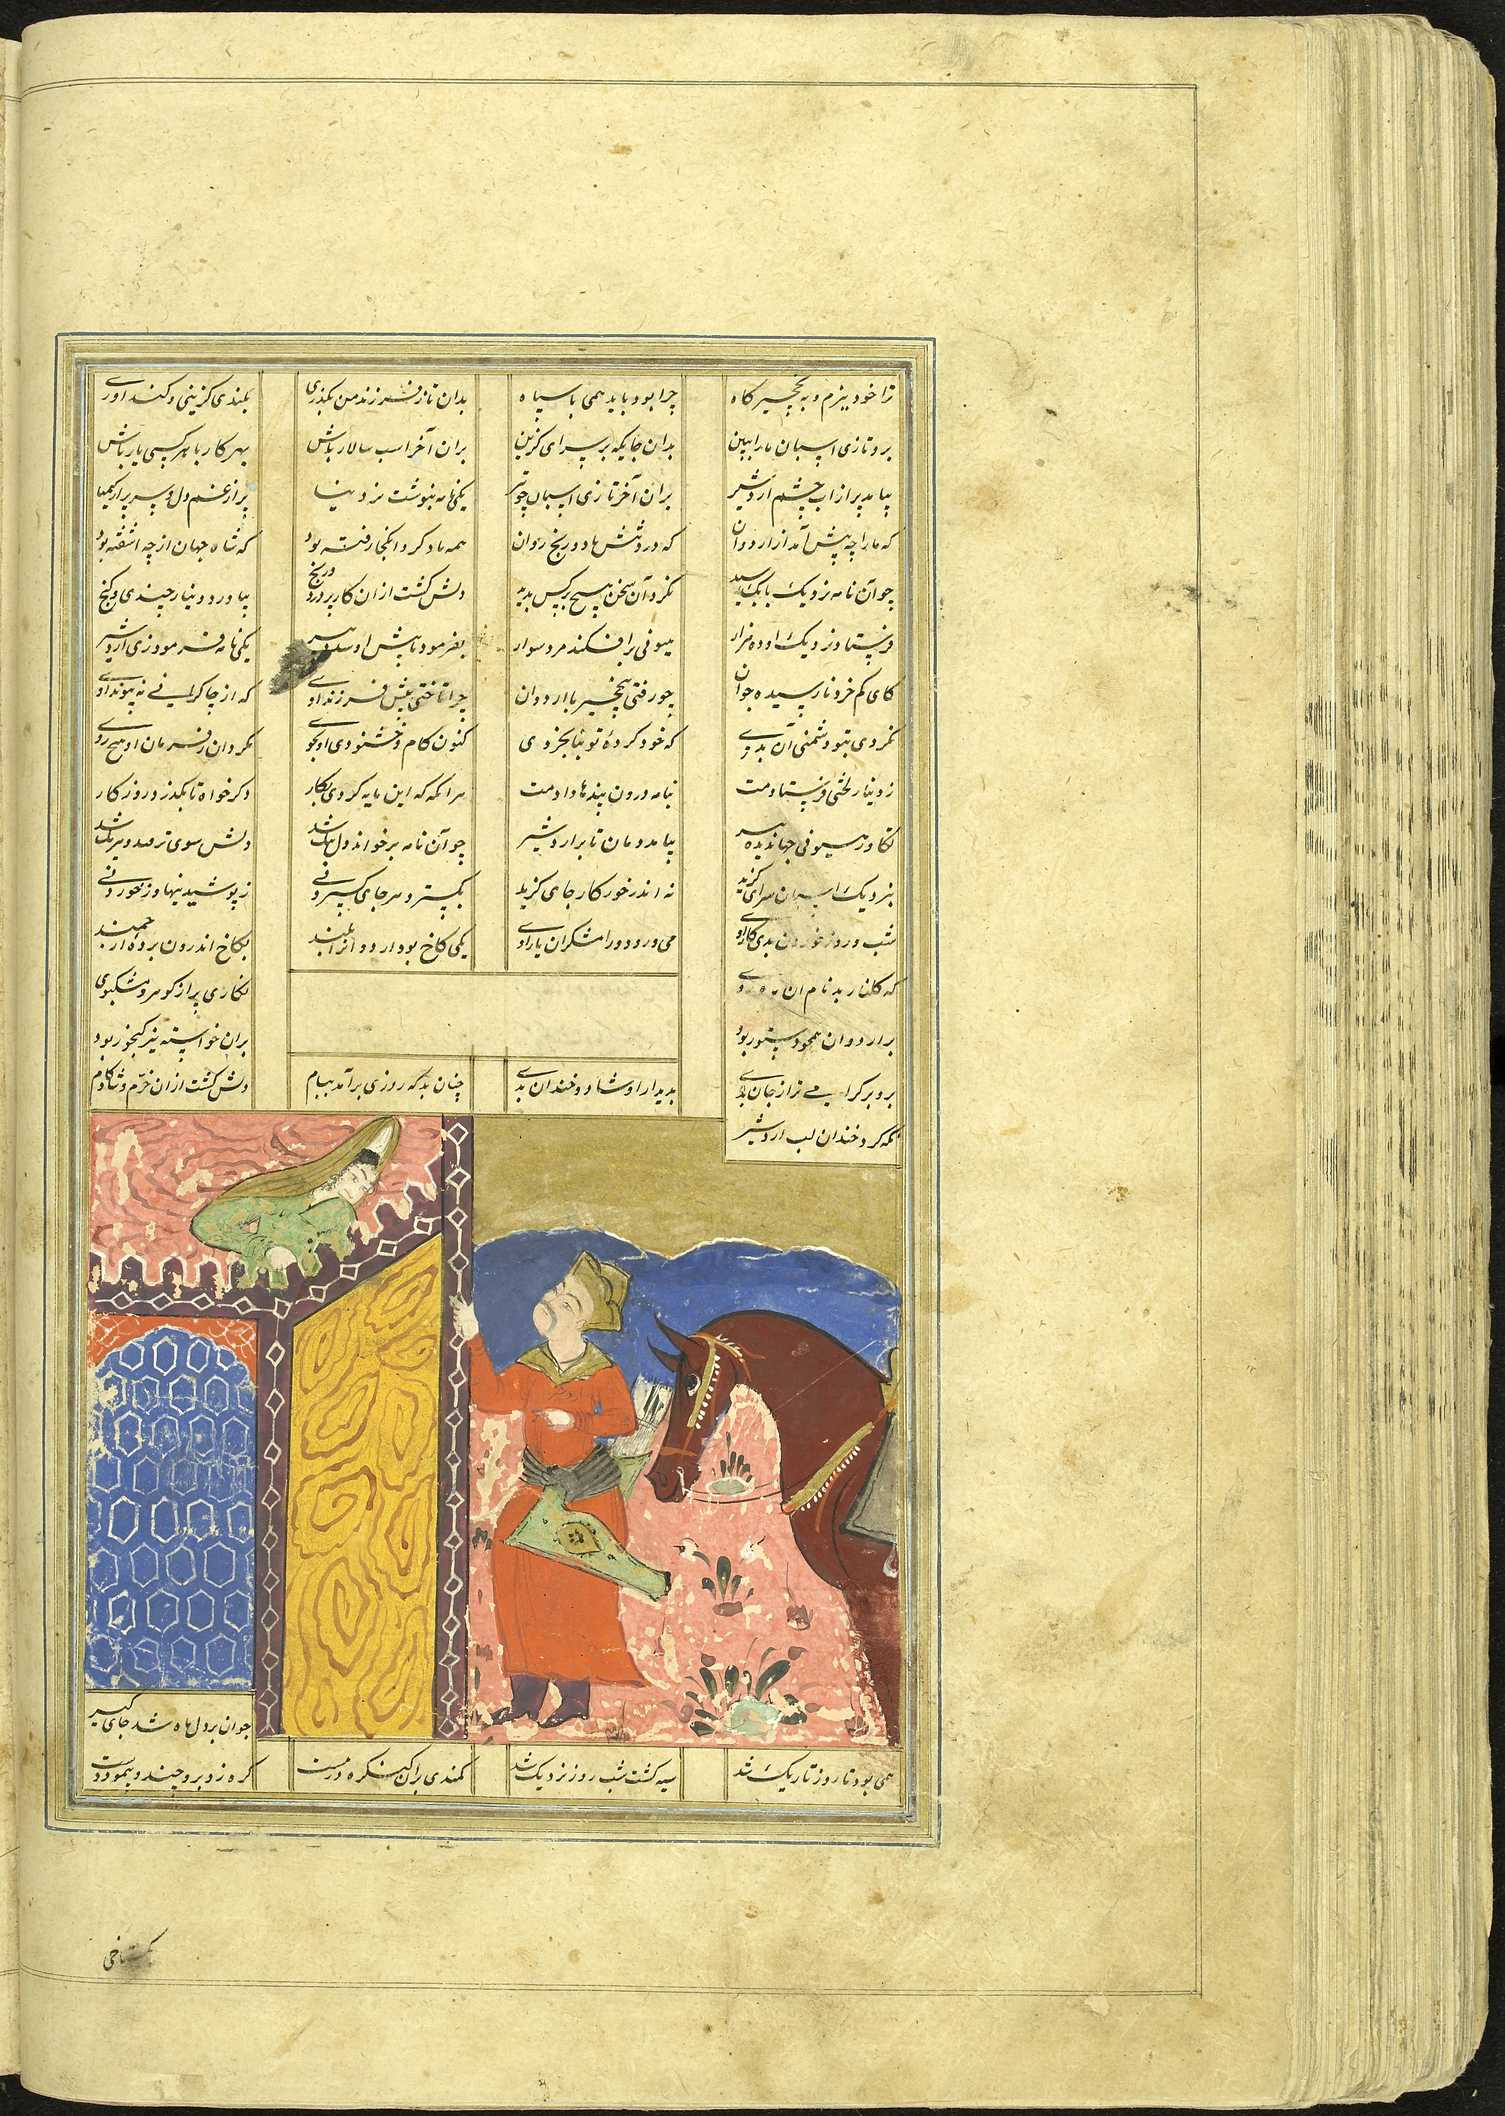 ترا خود ببزم و به نخچیر گاه چرا بود باید همی با سپاه بدان تا ز فرزند من بگذری بلندی گزینی و کنداوری
برو تازی اسپان ما را ببین بدان جایگه بر سرای گزین بران آخر اسب سالار باش بهر کار با هر کسی یار باش
بیامد پر از اب چشم اردشیر بران آخر تازی اسپان چو تیر یکی نامه بنوشت نزد نیا پر از غم دل و سر پر از کیمیا
که ما را چه پیش آمد از اردوان که درد تنش باد و رنج روان همه یاد کرد آنکجا رفته بود که شاه جهان از چه آشفته بود
چو آن نامه نزدیک بابک رسید نکرد آن سخن هیچ بر کس پدید دلش گشت از ان کار پر درد و رنج بیاورد دینار چندی و گنج
فرستاد نزدیک او ده هزار هیونی برافکند مرد سوار بفرمود تا پیش او شد دبیر یکی نامه فرمود زی اردشیر
کای کم خرد نارسیده جوان چو رفتی بنخچیر با اردوان چرا تاختی پیش فرزند اوی که از چاکرانی نه پیوند اوی
نکردی بتو دشمنی آن بدی که خود کردهٔ تو بنابخردی کنون کام و خشنودی او بجوی مگردان ز فرمان او هیچ روی
ز دینار لختی فرستادمت بنامه درون پندها دادمت هرانگه که این مایه کردی بکار دگر خواه تا بگذرد روزکار
تکاور هیونی جهاندیده پیر بیامد دمان تا بر اردشیر چو آن نامه برخواند دل شد دلش سوی شد
بنزدیک اسپان سرای گزید نه اندر خور کار جای گزید بگسترد هر جای گستردنی ز پوشیدنیها و ز خوردنی
شب و روز خوردن بدی کار اوی می و رود و رامشگران یار اوی یکی کاخ بود اردوانرا بلند بکاخ اندرون برده ارجمند
که گلنار بد نام ان ماه روی نگاری پر از گوهر و مشکبوی
بر اردوان همچو دستور بود بران خواسته نیز گنجور بود
برو بر گرامی تر از جان بدی بدیدار او شاد و خندان بدی چنان بد که روزی برآمد ببام دلش گشت از ان خرم و شادکام
نگه کرد خندان لب اردشیر
جوان بر دل ماه شد جای گیر
همی بود تا روز تاریک شد سیه گشت شب روز نزدیک شد کمندی بران کنگره در ببست گره زد برو چند و بپسود دست
بگستاخی